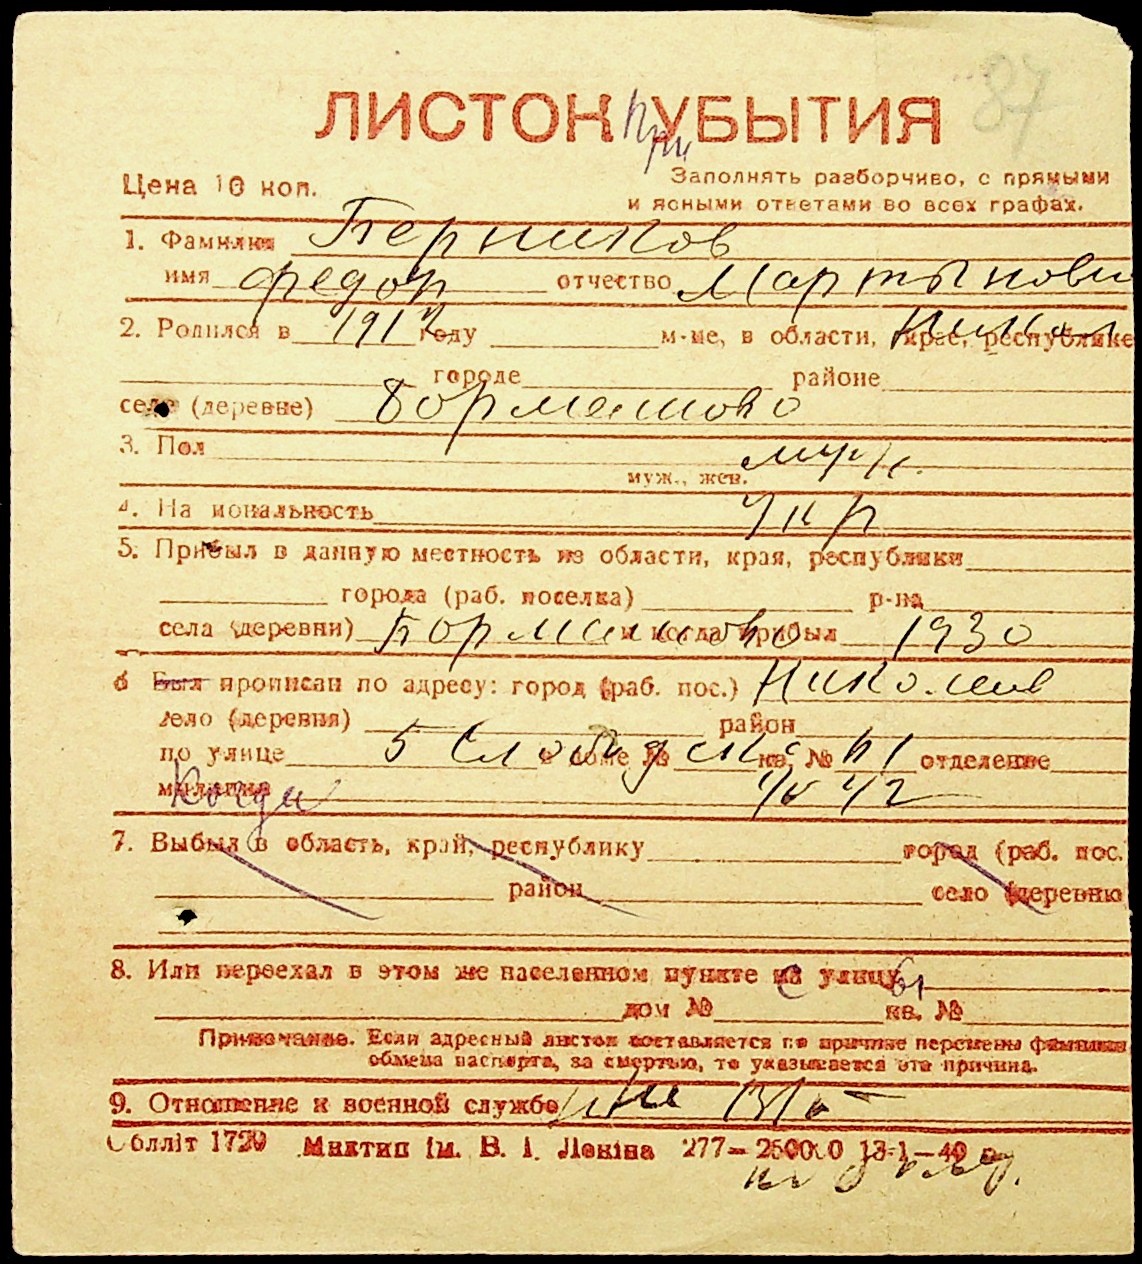 87
ЛИСТОК УБЫТИЯ
При
Цена 10 коп.
Заполнять разборчиво, с прямыми
и ясными ответами во всех графах.
1. Фамилия Берников
имя Федор отчество Мартынови
2. Родился в 1912 году м-це, в области, крае, республике
городе районе
селе (деревне) Бормашово
3. Пол муж.
муж., жен.
4. На иональность Укр
5. Прибыл в данную местность из области, края, республики
города (раб. поселка) р-на
села (деревни) Бормашово и когда прибыл 1930
6 Был прописан по адресу: город (раб. пос.) Николаев
село (деревня) район
по улице 5 Слободска в доме № кв. № 61 отделение
милиции
Когда
7. Выбыл в область, край, республику город (раб. пос.
район село (деревню
8. Или переехал в этом же населенном пункте на улицу
дом № кв. №
Примечание. Если адресный листок составляется по причине перемены фамилии
обмена паспорта, за смертью, то указывается эта причина.
9. Отношение к военной службе
Облліт 1720 Миктип ім. В. І. Леніна 277—250000 13-1—40 р.